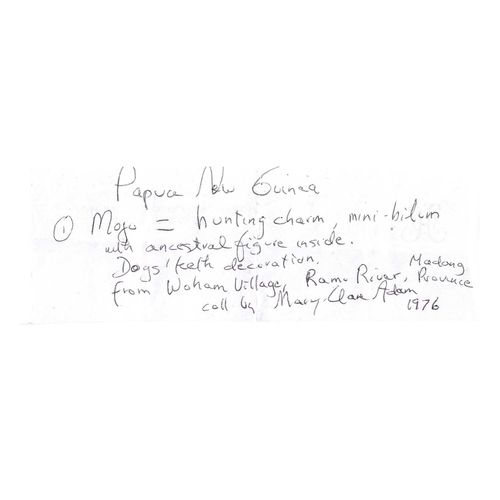 Papua New Guinea
① Mojo = hunting charm, mini-bilum
with ancestral figure inside.
Dogs' teeth decoration.
from Woham Village, Ramu River, Madang Province
coll by Mary-Clare Adam 1976